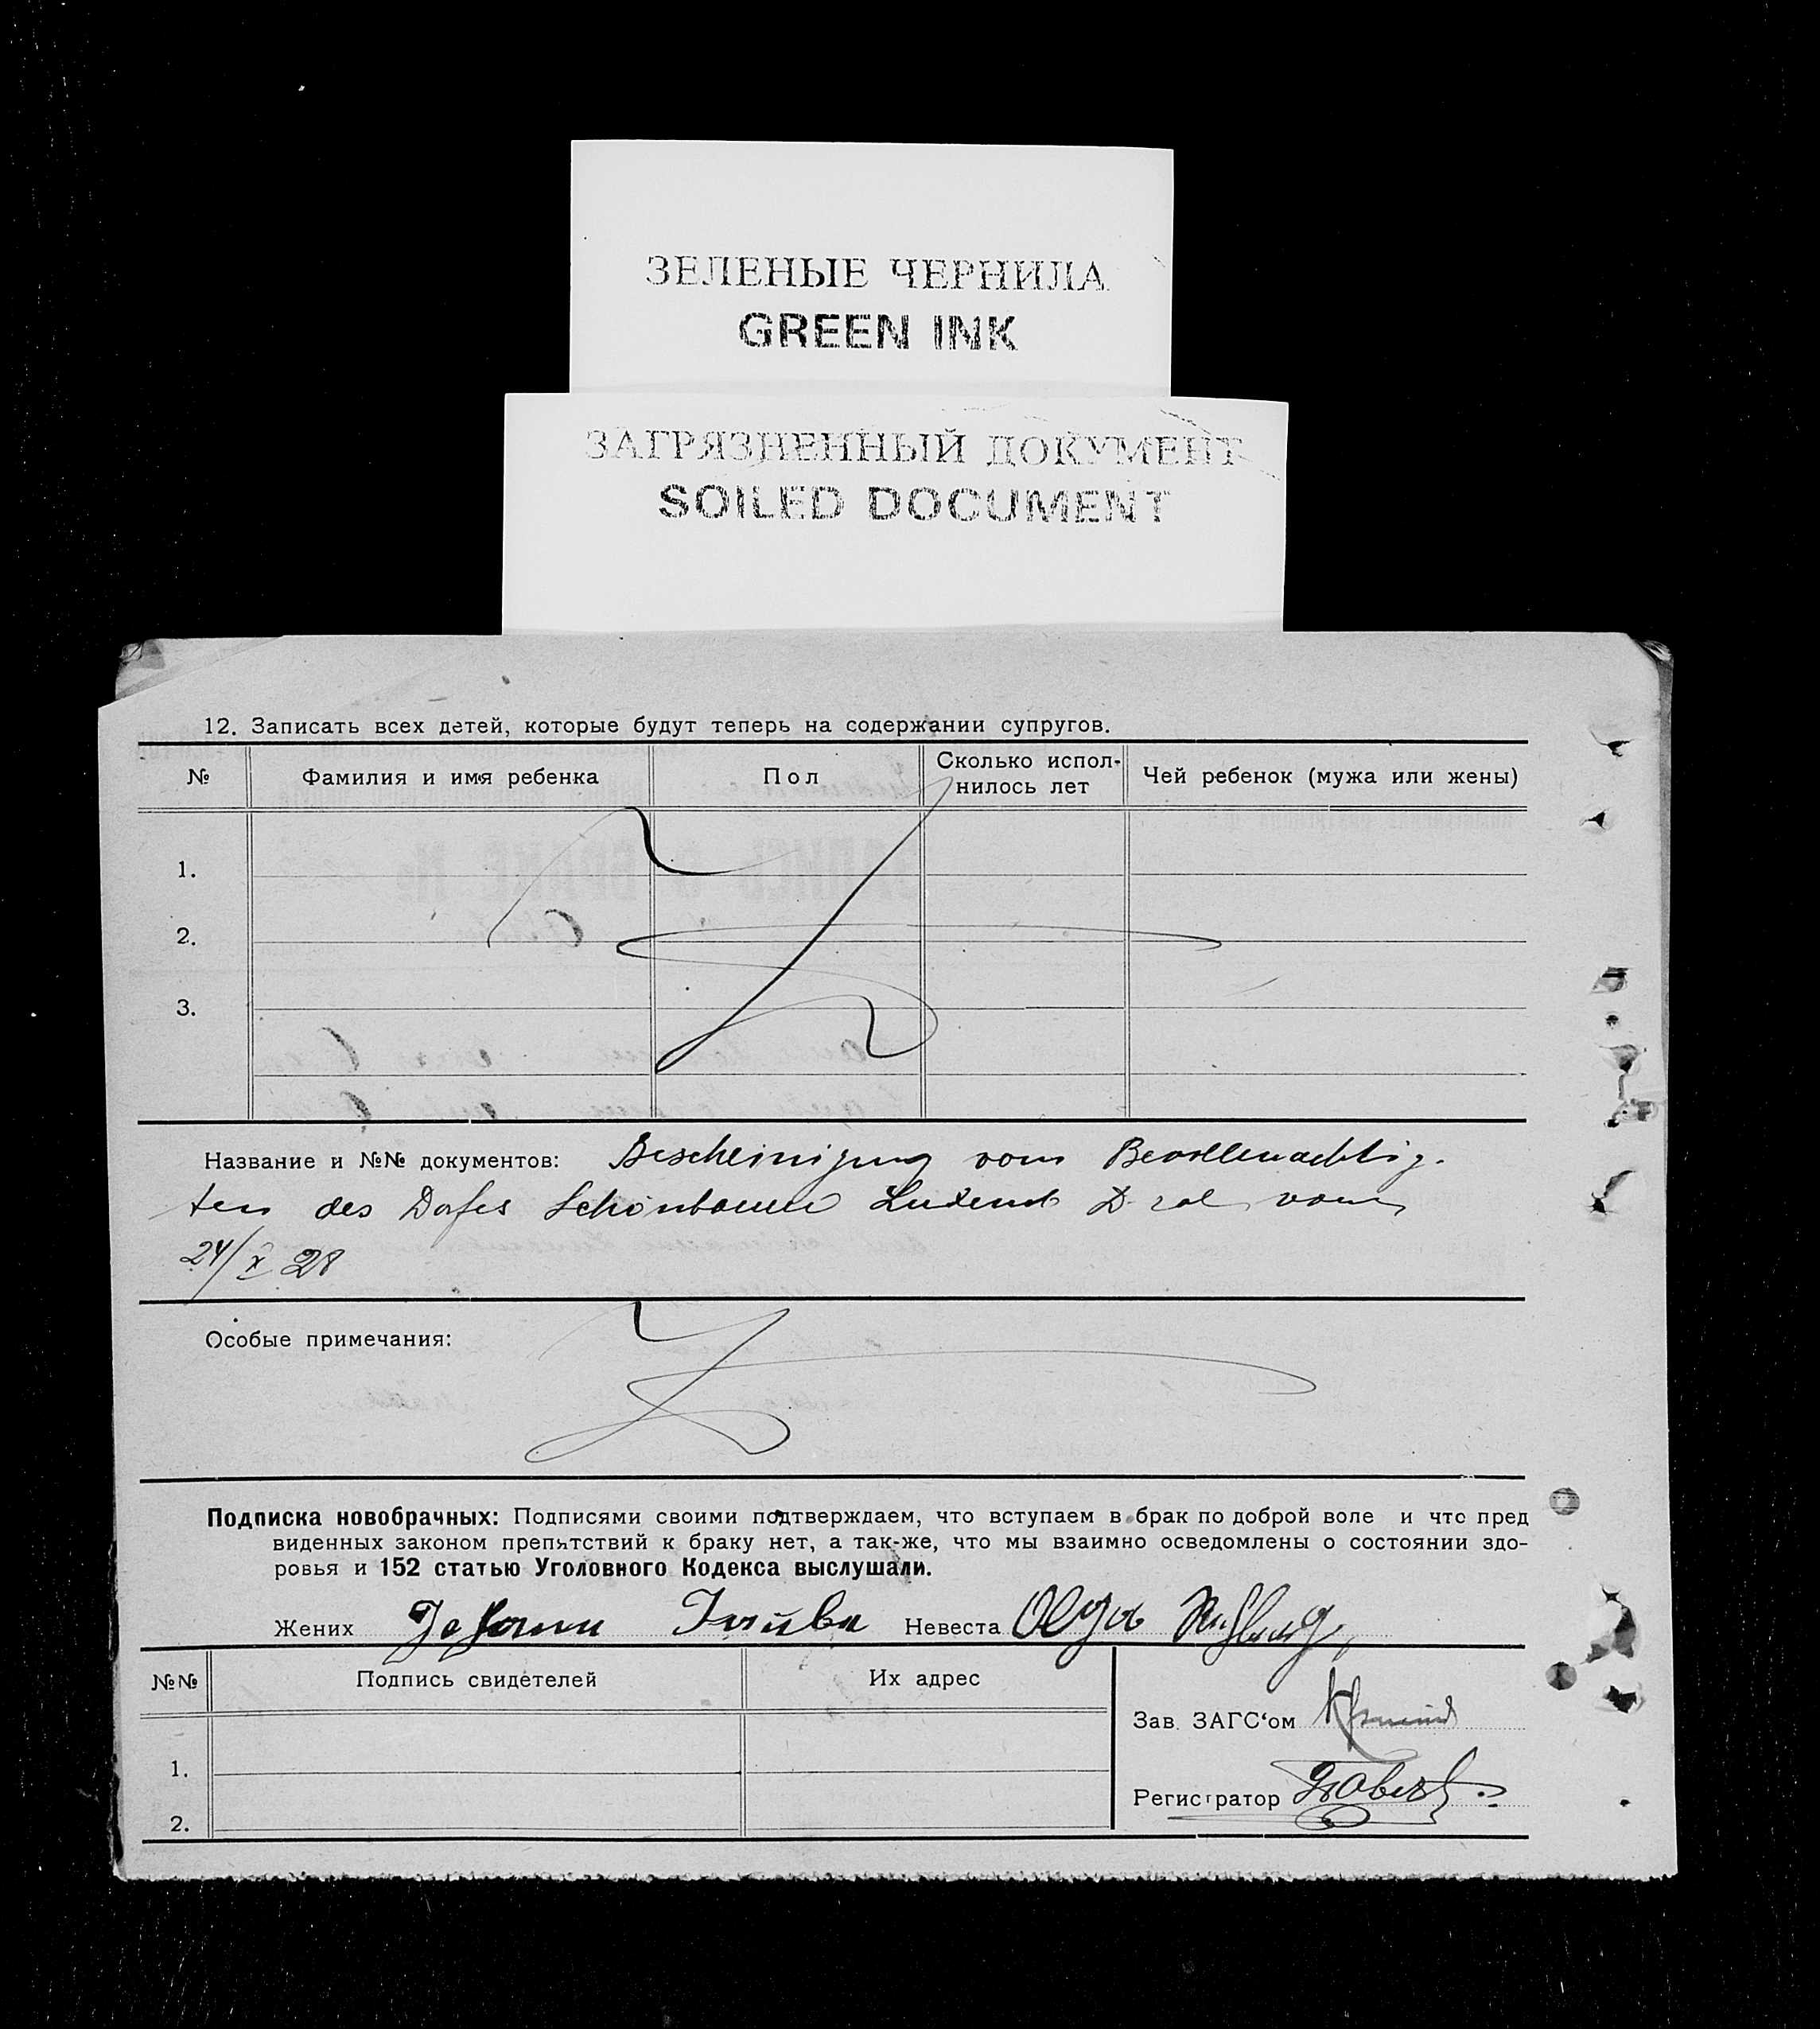 ЗЕЛЕНЫЕ ЧЕРНИЛА
GREEN INK
ЗАГРЯЗНЕННЫЙ ДОКУМЕНТ
SOILED DOCUMENT
12. Записать всех детей, которые будут теперь на содержании супругов.
№ Фамилия и имя ребенка Пол Сколько испол-нилось лет Чей ребенок (мужа или жены)
1.
2.
3.
Название и №№ документов: Bescheinigung vom Bevollmächtig-
ten des Dorfes Schönbaum vom
24/X 28
Особые примечания:
Подписка новобрачных: Подписями своими подтверждаем, что вступаем в брак по доброй воле и что пред
виденных законом препятствий к браку нет, а так-же, что мы взаимно осведомлены о состоянии здо-
ровья и 152 статью Уголовного Кодекса выслушали.
Жених Johann Невеста Olga
№№ Подпись свидетелей Их адрес
Зав. ЗАГС'ом
1.
Регистратор
2.